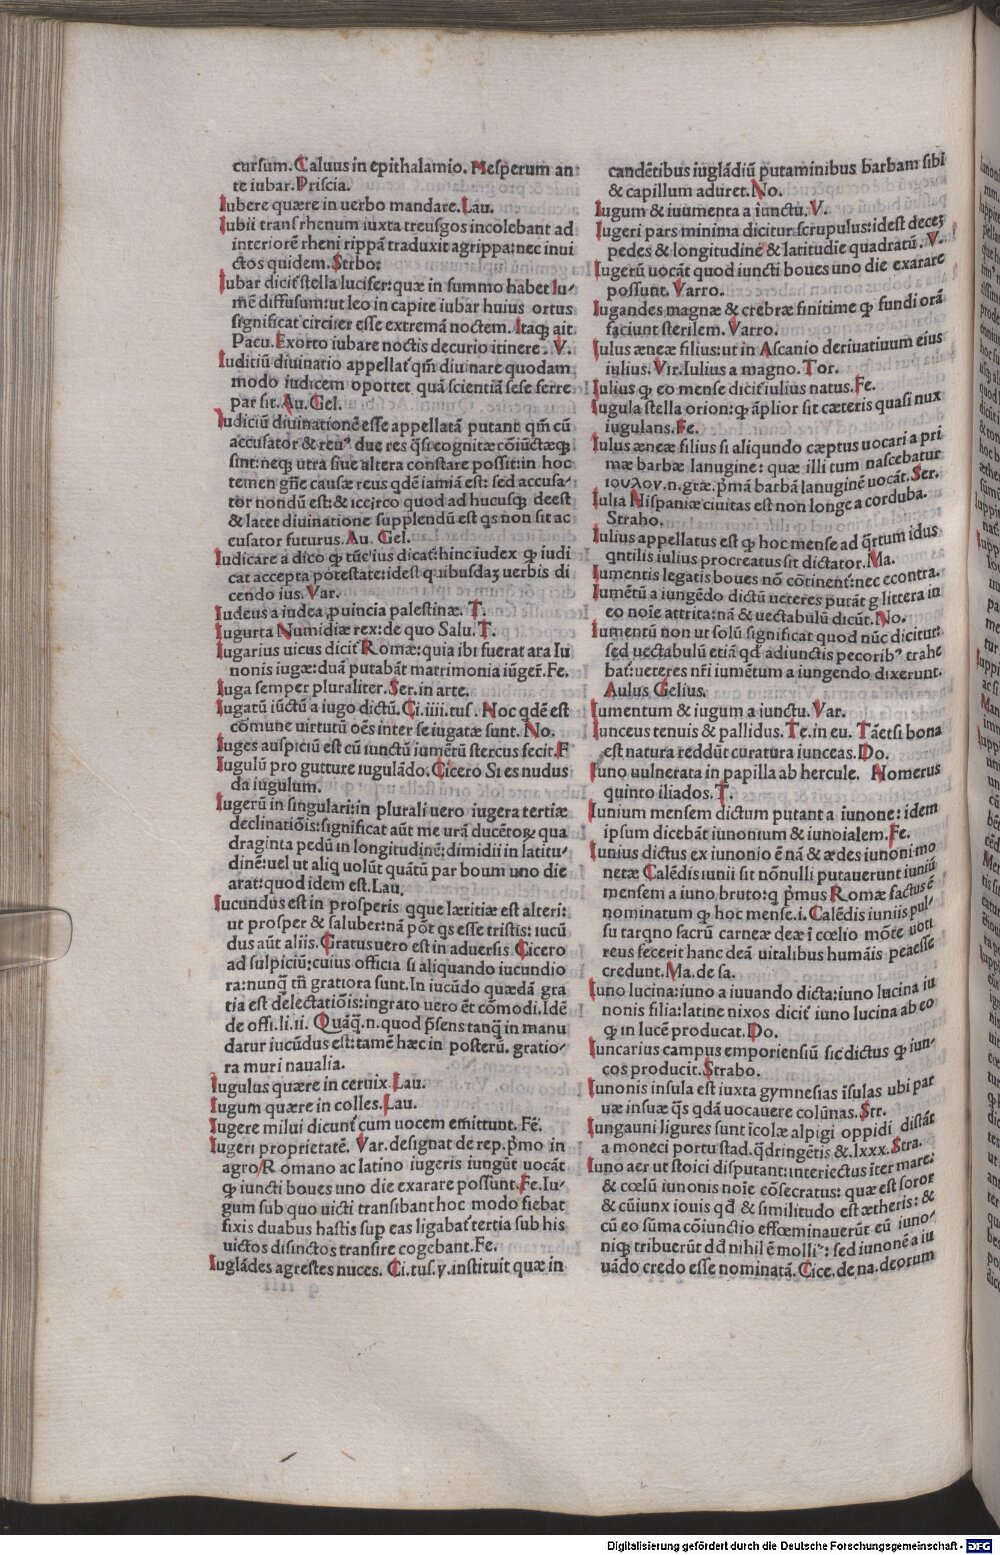 cursum. Caluus in epithalamio. Hesperum an
te iubar. Priscia.
Iubere quære in uerbo mandare. Lau.
Iubii transrhenum iuxta treusgos incolebant ad
interiorē rheni rippā traduxit agrippa: nec inui
ctos quidem. Strbo:
Iubar dicit̄ stella lucifer: quæ in summo habet lu⸗
mē diffusum: ut leo in capite iubar huius ortus
significat circiter esse extremā noctem. Itaqȝ ait
Pacu. Exorto iubare noctis decurio itinere. V.
Iuditiū diuinatio appellat̄ qm̄ diuinare quodam
modo iudicem oportet quā scientiā sese ferre
par sit. Au. Gel.
Iudiciū diuinationē esse appellatā putant qm̄ cū
accusator & reuꝰ due res q̄si cognitæ cōiūctæqȝ
sint: neqȝ utra siue altera constare possit: in hoc
temen gn̄e causæ reus qdē iamiā est: sed accusa⸗
tor nondū est: & iccirco quod ad hucusqȝ deest
& latet diuinatione supplendū est qs non sit ac
cusator futurus. Au. Gel.
Iudicare a dico ꝙ tūc ius dicat: hinc iudex ꝙ iudi
cat accepta potestate: idest quibusdaȝ uerbis di
cendo ius. Var.
Iudeus a iudea ꝓuincia palestinæ. T.
Iugurta Numidiæ rex: de quo Salu. T.
Iugarius uicus dicit̄ Romæ: quia ibi fuerat ara Iu
nonis iugæ: duā putabāt matrimonia iūger̄. Fe.
Iuga semper pluraliter. Ser. in arte.
Iugatū iūctū a iugo dictū. Ci. iiii. tus. Hoc qdē est
cōmune uirtutū oēs inter se iugatæ sunt. No.
Iuges auspiciū est cū iunctū iumētū stercus fecit. F
Iugulū pro gutture iugulādo. Cicero Si es nudus
da iugulum.
Iugerū in singulari: in plurali uero iugera tertiæ
declinatiōis: significat aūt me urā ducētoꝝ qua
draginta pedū in longitudinē: dimidii in latitu⸗
dinē: uel ut aliq uolūt quātū par boum uno die
arat: quod idem est. Lau.
Iucundus est in prosperis qque lætitiæ est alteri:
ut prosper & saluber: nā pōt qs esse tristis: iucū
dus aūt aliis. Gratus uero est in aduersis. Cicero
ad sulpiciū: cuius officia si aliquando iucundio
ra: nunq̄ tn̄ gratiora sunt. In iucūdo quædā gra
tia est delectatiōis: ingrato uero ēt cōmodi. Idē
de offi. li. ii. Quāq̄. n. quod p̄sens tanq̄ in manu
datur iucūdus est: tamē hæc in posterū. gratio⸗
ra muri naualia.
Iugulus quære in ceruix. Lau.
Iugum quære in colles. Lau.
Iugere milui dicunt̄ cum uocem emittunt. Fē.
Iugeri proprietatē. Var. designat de rep. p̄mo in
agro Romano ac latino iugeris iungūt uocāt
ꝙ iuncti boues uno die exarare possunt. Fe. Iu⸗
gum sub quo uicti transibant hoc modo fiebat
fixis duabus hastis suꝑ eas ligabat̄ tertia sub his
uictos disinctos transire cogebant. Fe.
Iuglādes agrestes nuces. Ci. tus. y. instituit quæ in
candētibus iuglādiū putaminibus barbam sibi
& capillum aduret. No.
Iugum & iuumenta a iunctu. V.
Iugeri pars minima dicitur scrupulus: idest deceȝ
pedes & longitudinē & latitudie quadratū. V.
Iugerū uocāt quod iuncti boues uno die exarare
possunt. Varro.
Iugandes magnæ & crebræ finitime ꝙ fundi orā
faciunt sterilem. Varro.
Iulus æneæ filius: ut in Ascanio deriuatiuum eius
iulius. Vir. Iulius a magno. Tor.
Iulius ꝙ eo mense dicit̄ iulius natus. Fe.
Iugula stella orion: ꝙ āplior sit cæteris quasi nux
iugulans. Fe.
Iulus æneæ filius si aliqundo cæptus uocari a pri
mæ barbæ lanugine: quæ illi tum nascebatur
ιουλον. n. græ. p̄mā barbā lanuginē uocāt. Ser.
Iulia Hispaniæ ciuitas est non longe a corduba.
Straho.
Iulius appellatus est ꝙ hoc mense ad q̄rtum idus
qntilis iulius procreatus sit dictator. Ma.
Iumentis legatis boues nō cōtinent̄: nec econtra.
Iumētū a iungēdo dictū ueteres putāt g littera in
eo noīe attrita: nā & uectabulū dicūt. No.
Iumentū non ut solū significat quod nūc dicitur:
sed uectabulū etiā qd adiunctis pecoribꝰ trahe
bat̄: ueteres nr̄i iumētum a iungendo dixerunt.
Aulus Gelius.
Iumentum & iugum a iunctu. Var.
Iunceus tenuis & pallidus. Te. in eu. Tāetsi bona
est natura reddūt curatura iunceas. Do.
Iuno uulnerata in papilla ab hercule. Homerus
quinto iliados. T.
Iunium mensem dictum putant a iunone: idem
ipsum dicebāt iunonium & iunoialem. Fe.
Iunius dictus ex iunonio ē nā & ædes iunoni mo
netæ Calēdis iunii sit nōnulli putauerunt iuniū
mensem a iuno bruto: q p̄mus Romæ factus ē
nominatum ꝙ hoc mense. i. Calēdis iuniis pul⸗
su tarqno sacrū carneæ deæ ī cœlio mōte uoti
reus fecerit hanc deā uitalibus humāis peaesse
credunt. Ma. de sa.
Iuno lucina: iuno a iuuando dicta: iuno lucina iu
nonis filia: latine nixos dicit̄ iuno lucina ab eo
ꝙ in lucē producat. Do.
Iuncarius campus emporiensiū sic dictus ꝙ iun⸗
cos producit. Strabo.
Iunonis insula est iuxta gymnesias īsulas ubi par
uæ insuæ q̄s qdā uocauere colūnas. Str.
Iungauni ligures sunt īcolæ alpigi oppidi distāt
a moneci portu stad. q̄dringētis &. lxxx. Stra.
Iuno aer ut stoici disputant: interiectus īter mare:
& cœlū iunonis noīe cōsecratus: quæ est soror
& cūiunx iouis qd̄ & similitudo est ætheris: &
cū eo sūma cōiunctio effœminauerūt eū iuno⸗
niqȝ tribuerūt dd nihil ē molliꝰ: sed iunonē a iu
uādo credo esse nominatā. Cice. de na. deorum
Digitalisierung gefördert durch die Deutsche Forschungsgemeinschaft - DFG